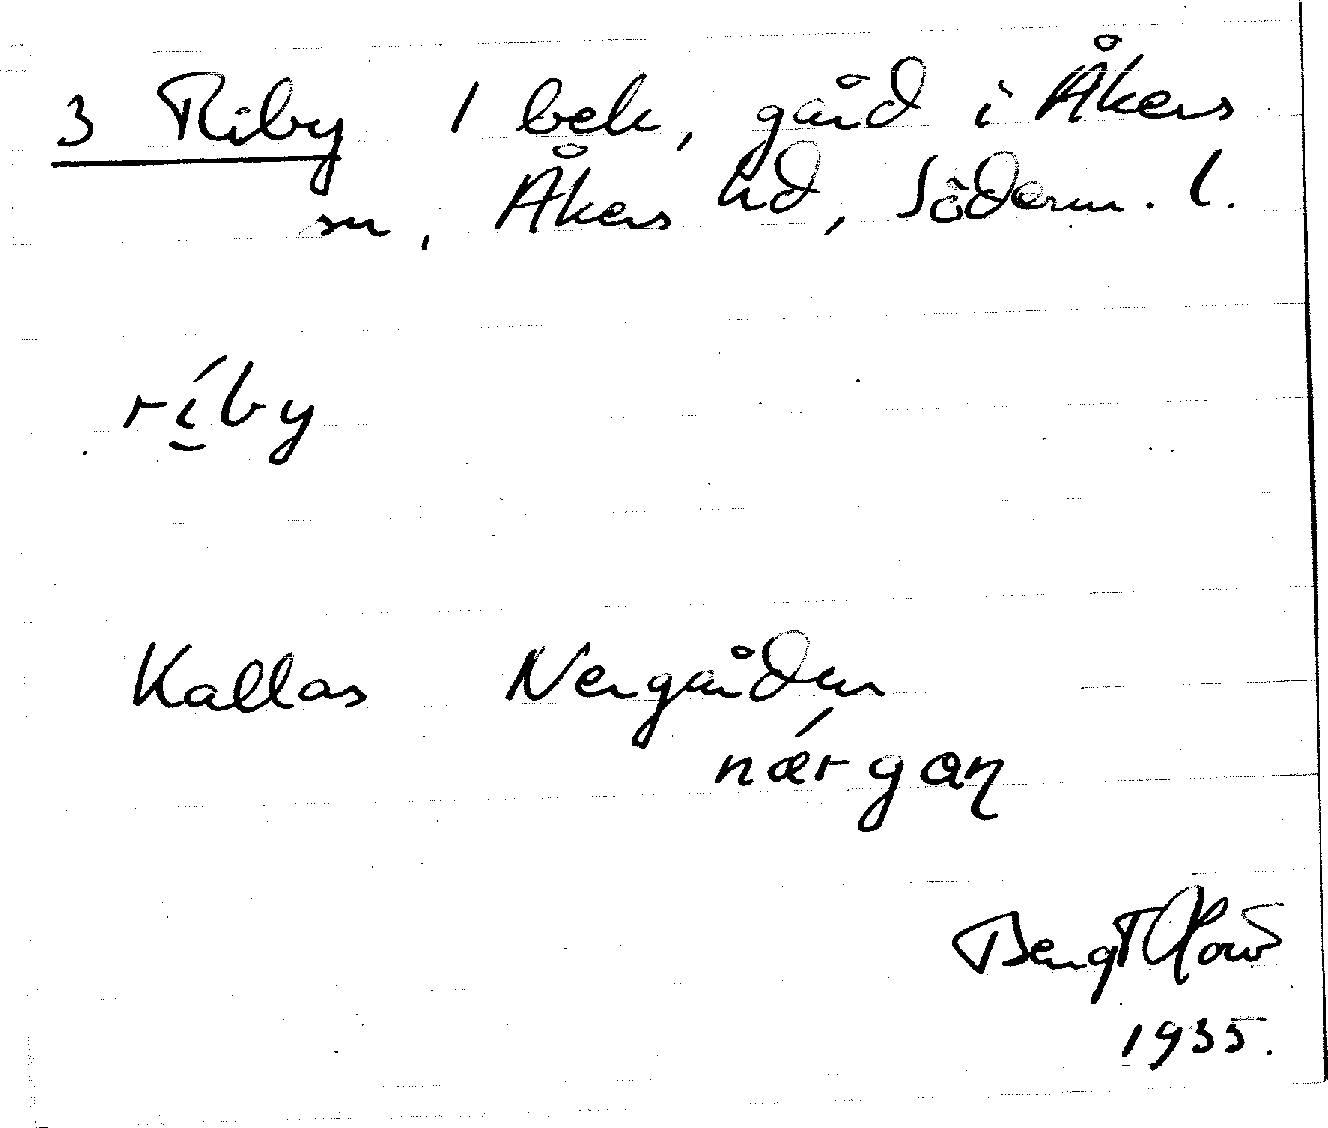 3 Riby 1 bek, gård i Åkers
sn, Åkers hd, Söderm. l.
rí̱by
Kallas Nergården
nǽrgaɳ
Bengt
1935.